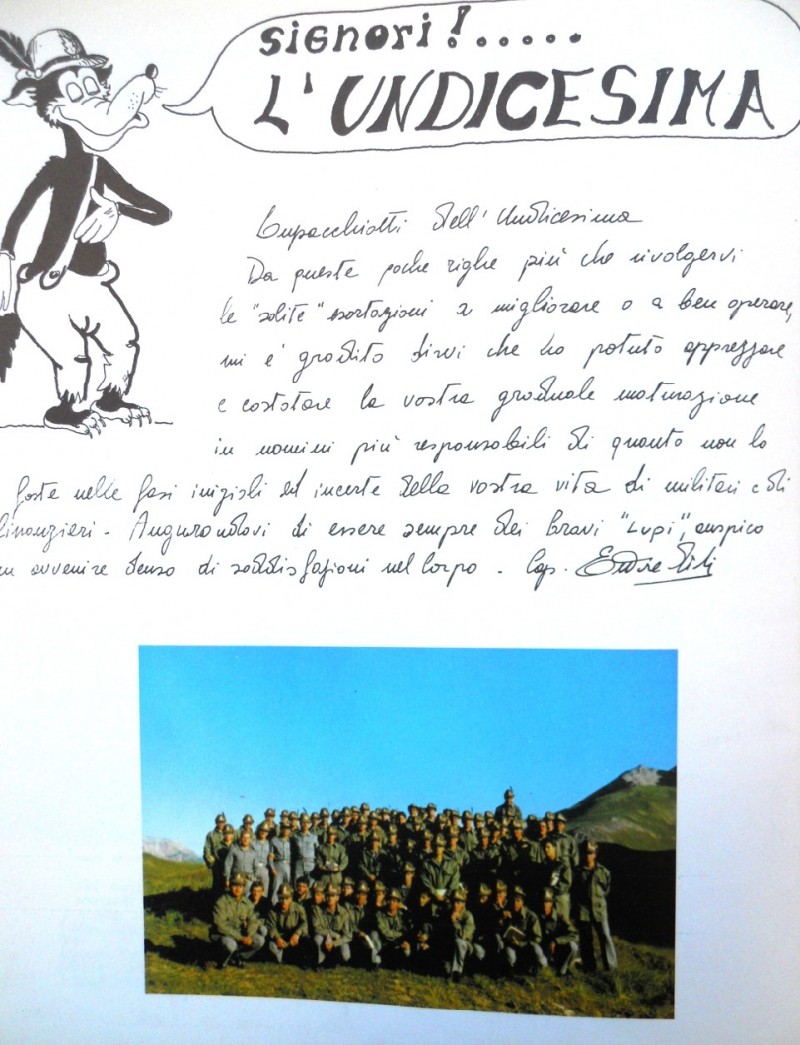 SIGNORI!.....
L'UNDICESIMA
Lupacchiotti dell'Undicesima
Da queste poche righe più che rivolgervi
le "solite" esortazioni a migliorare o a ben operare,
mi è gradito dirvi che ho potuto apprezzare
e costatare la vostra graduale maturazione
in uomini più responsabili di quanto non lo
foste nelle fasi iniziali ed incerte della vostra vita di militari e di
finanzieri - Augurandovi di essere sempre dei bravi "Lupi", auspico
un avvenire denso di soddisfazioni nel Corpo - Cap.